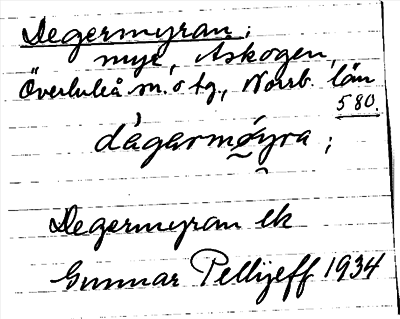 Degermyran;
myr, Askogen,
Överluleå sn. o tg., Norrb. län
580.
dágarmǿyra;
Degermyran ek
Gunnar Pellijeff 1934